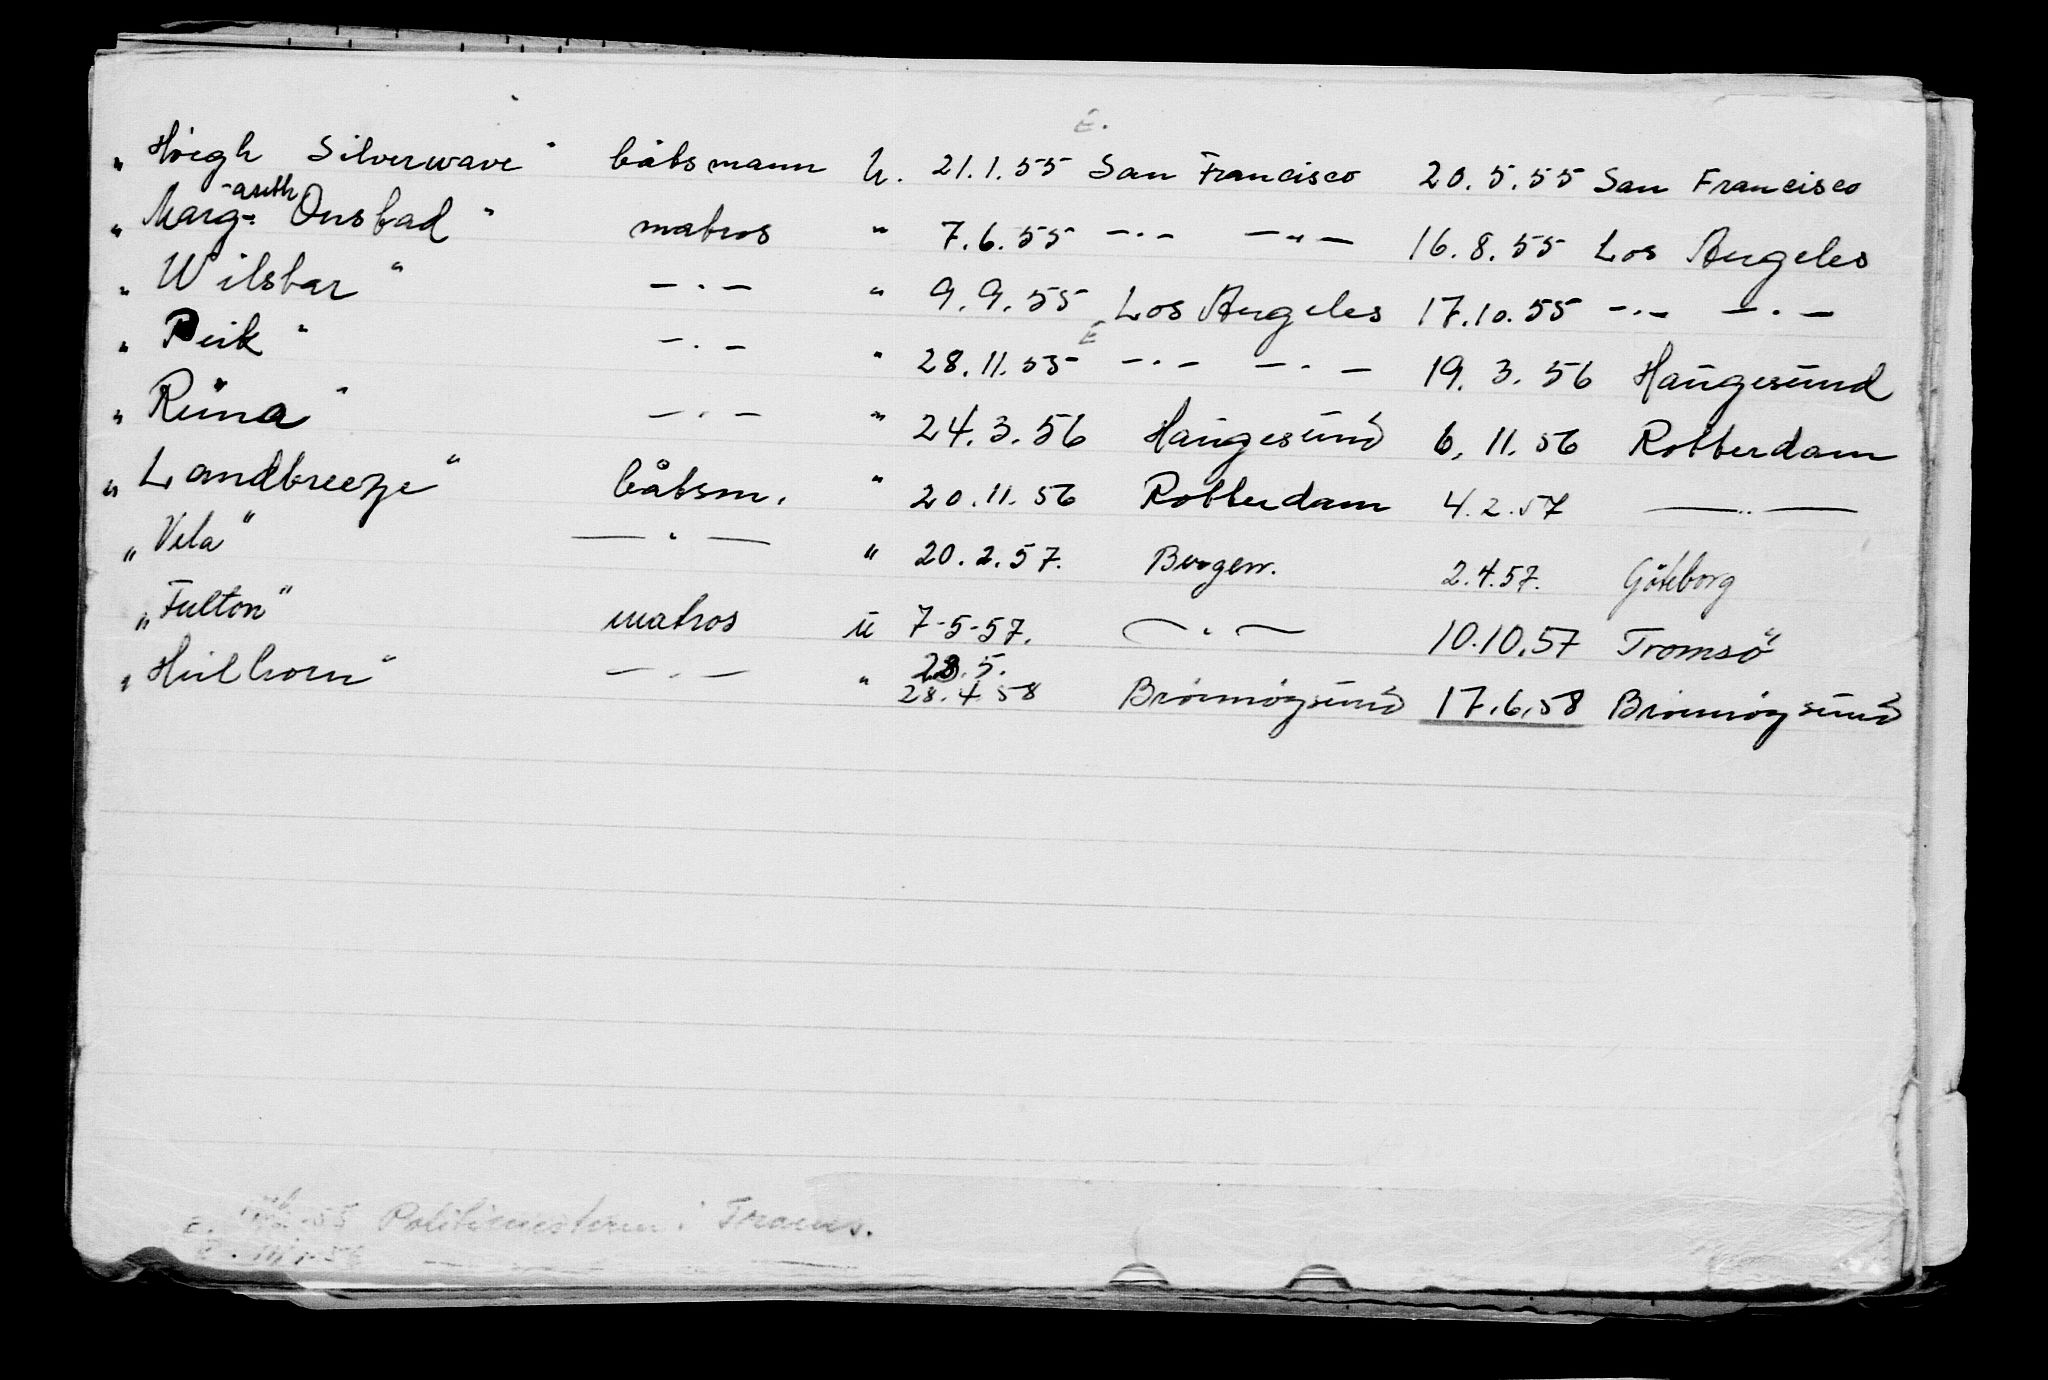 E.
„ Höegh Silverwave " båtsmann u. 21.1.55 San Francisco 20.5.55 San Francisco
„ Marg-areth Onstad " matros " 7.6.55 -"- -"- 16.8.55 Los Angeles
„ Wilstar " -"- " 9.9.55 Los Angeles 17.10.55 -"- -"-
„ Peik " -"- " 28.11.55 E -"- -"- 19.3.56 Haugesund
„ Runa " -"- " 24.3.56 Haugesund 6.11.56 Rotterdam
„ Landbreeze " båtsm. " 20.11.56 Rotterdam 4.2.57 -"-
„ Vela " -"- " 20.2.57. Bergen. 2.4.57. Göteborg
„ Fulton " matros u 7-5-57. -"- 10.10.57 Tromsö
„ Heilhorn " -"- " 28.5.
28.4.58 Brönnöysund 17.6.58 Brönnöysund
E. 55 Politimesteren i Troms.